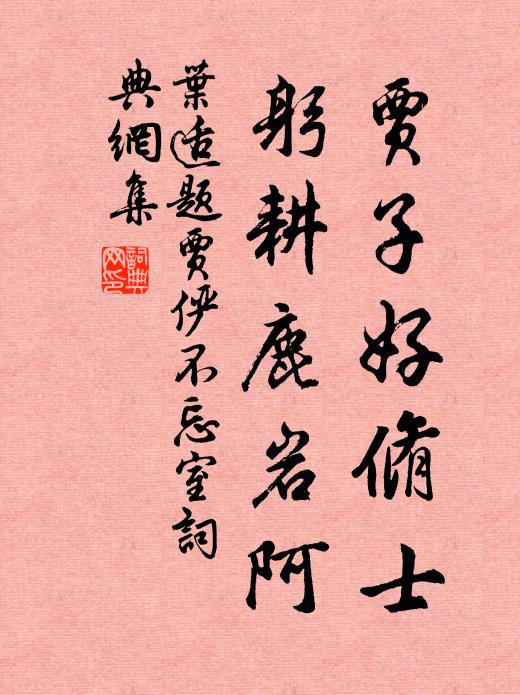 賈子好脩士
躬耕鹿岩阿
葉适題賈俨不忘室詞
典網集
詞典
网印